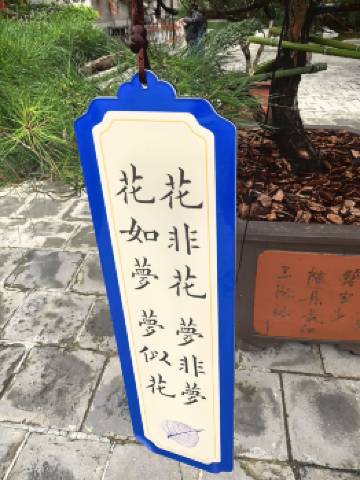 花非花 夢非夢
花如夢 夢似花